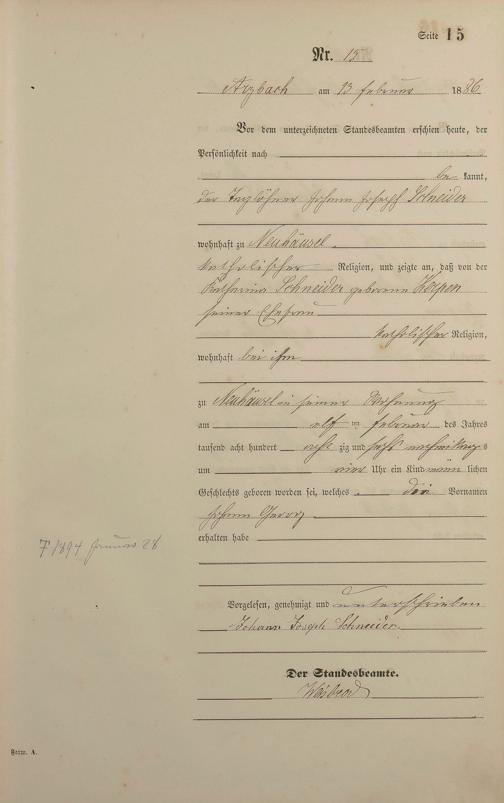 Seite 15
Nr. 15
Arzbach am 13 Februar 1886
Vor dem unterzeichneten Standesbeamten erschien heute, der
Persönlichkeit nach
be kannt,
der Taglöhner Johann Joseph Schneider
wohnhaft zu Neuhäusel
katholischer Religion, und zeigte an, daß von der
Katharina Schneider geborene
seiner Ehefrau
katholischer Religion,
wohnhaft bei ihm
zu Neuhäusel in seiner Wohnung
am elf ten Februar des Jahres
tausend acht hundert acht zig und sechs nachmittags
um vier Uhr ein Kind männ lichen
Geschlechts geboren worden sei, welches die Vornamen
Johann Georg
erhalten habe
1894 Januar 28
Vorgelesen, genehmigt und unterschrieben
Johann Joseph Schneider
Der Standesbeamte.
Form. A.